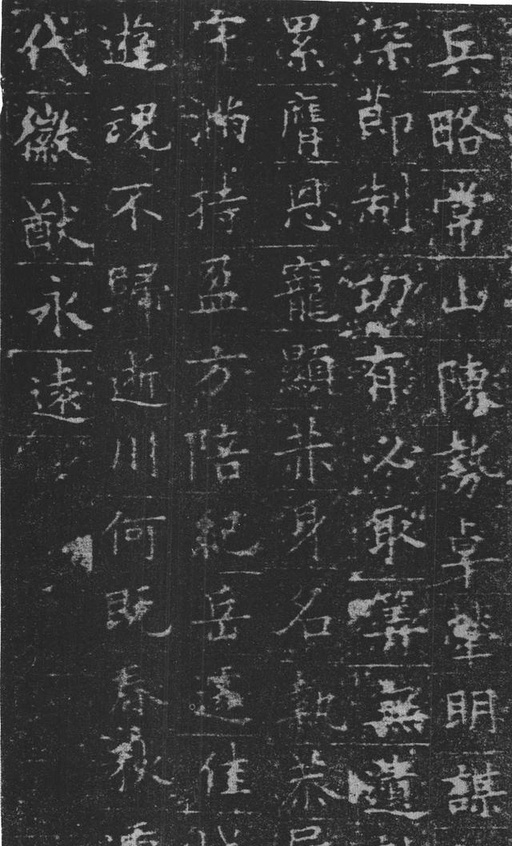 兵略常山陳勢卓犖明謀
深節制功有必取筭無遺
累膺恩寵顯荣身名執恭
牢滿持盈方陪紀岳遘佳
遊魂不歸逝川何既春秋
代徽猷永遠